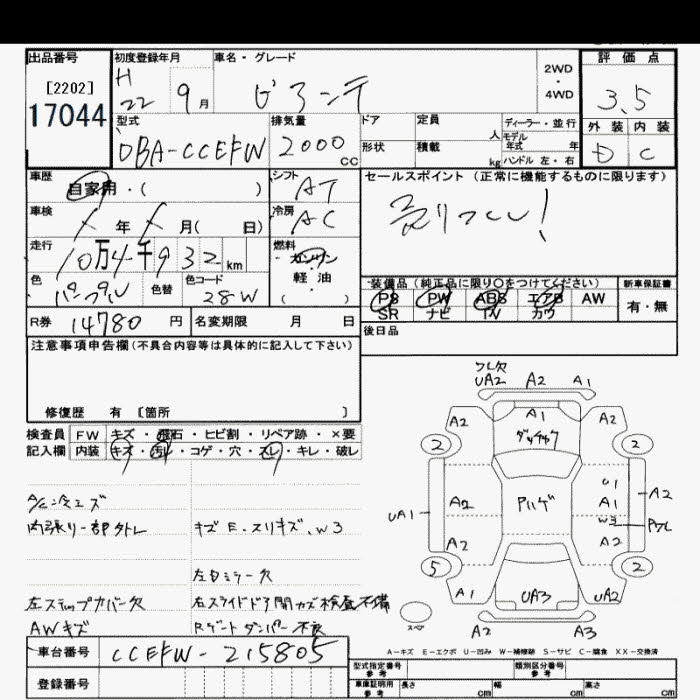 出品番号 初度登録年月 車名・グレード 評価点
[2202] H 22 年 9月 ビアンテ 2WD・4WD 3.5
17044
型式 排気量 ドア 定員 人 ディーラー・並行 外装 内装
DBA-CCEFW 2000cc 形状 積載 kg モデル年式 年 ハンドル 左・右 D C
車歴 シフト セールスポイント (正常に機能するものに限ります)
自家用・( ) AT 売りつくし!
車検 冷房
年 月( 日) AC
走行 燃料
10万4千932km ガソリン・軽油・( )
色 色替 色コード 装備品(純正品に限り○をつけてください) 新車保証書
パープル 28W PS PW ABS エアB AW 有・無
SR ナビ TV カワ
R券 14780円 名変期限 月 日 後日品
注意事項申告欄(不具合内容等は具体的に記入して下さい)
修復歴 有 〔箇所 〕
検査員記入欄 FW キズ・飛石・ヒビ割・リペア跡・×要
内装 キズ・汚れ・コゲ・穴・スレ・キレ・破レ
A/C冷エズ
内張リ一部外レ キズE.スリキズ.W3
左ミラー欠
左ステップカバー欠 右スライドドア開カズ 検査不備
AWキズ Rゲートダンパー不良
車台番号 CCEFW-215805
登録番号
欠
UA2 A2 A1
A2 A1 A2
2 2
UA1 A2 U1
A1 A2
W3
A2 A2
5 2
A1 UA3 UA2
スペア
A2 A3
A-キズ E-エクボ U-凹み W-補修跡 S-サビ C-腐食 XX-交換済
型式指定番号 参考 類別区分番号 参考
車庫証明用 参考 長さ cm 幅 cm 高さ cm